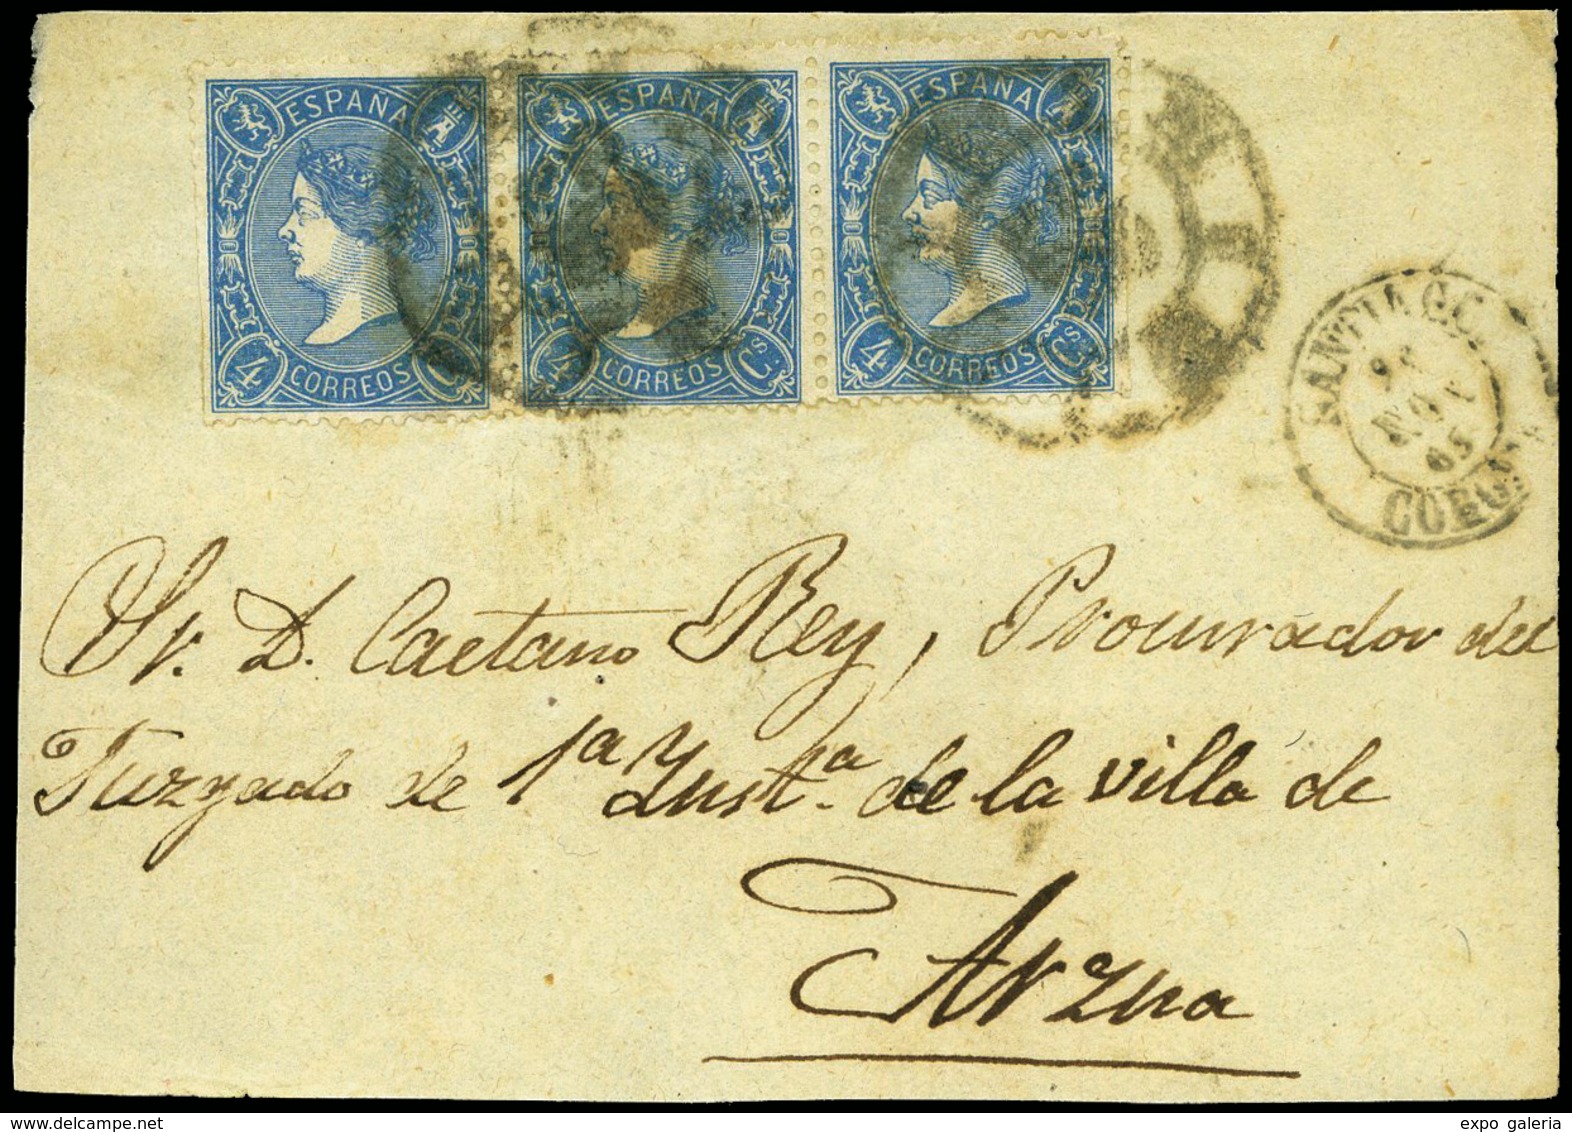 ESPAÑA ESPAÑA ESPAÑA
4 CORREOS Cs 4 CORREOS Cs 4 CORREOS Cs
SANTIAGO
NOV
65
CORUÑA
Sr. D. Caetano Rey, Procurador del
Juzgado de 1ª Ynstª. de la villa de
Arzua
delcampe.net
expo galeria